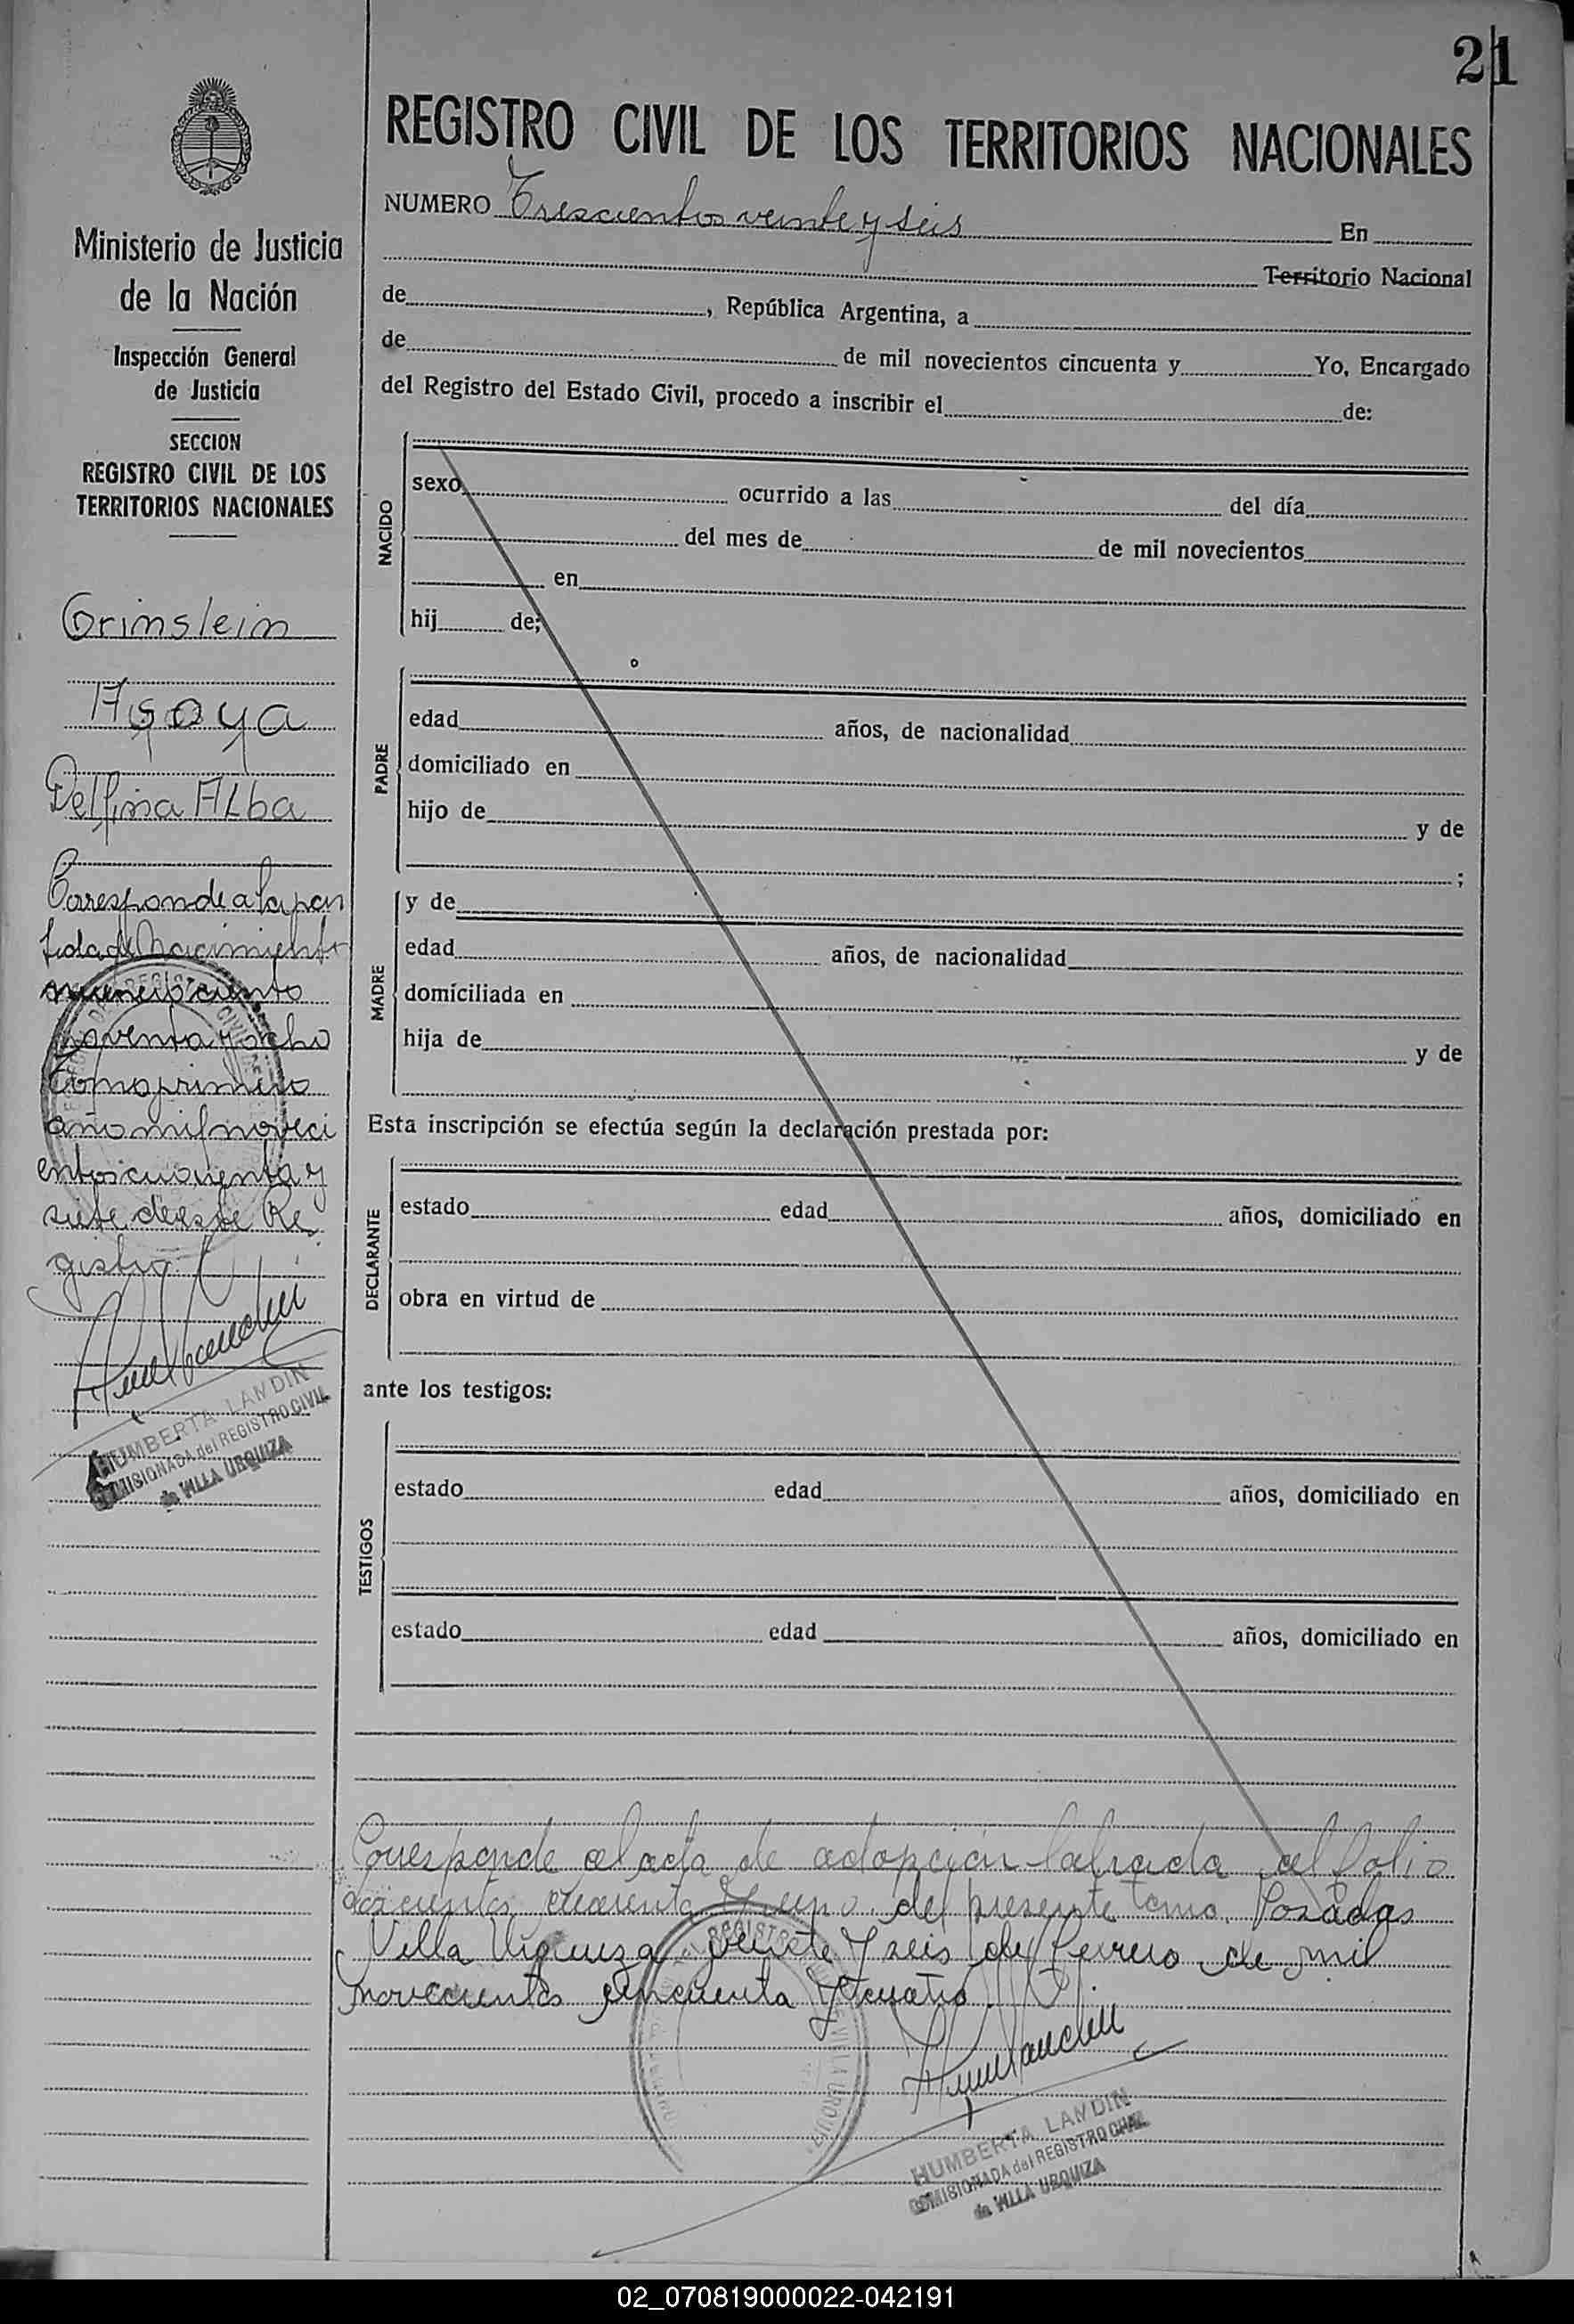 21
REGISTRO CIVIL DE LOS TERRITORIOS NACIONALES
NUMERO Trescientos veinte y seis En
Territorio Nacional
de , República Argentina, a
de de mil novecientos cincuenta y Yo, Encargado
del Registro del Estado Civil, procedo a inscribir el de:
NACIDO
sexo ocurrido a las del día
del mes de de mil novecientos
en
hij de;
PADRE
edad años, de nacionalidad
domiciliado en
hijo de y de
;
MADRE
y de
edad años, de nacionalidad
domiciliada en
hija de y de
Esta inscripción se efectúa según la declaración prestada por:
DECLARANTE
estado edad años, domiciliado en
obra en virtud de
ante los testigos:
TESTIGOS
estado edad años, domiciliado en
estado edad años, domiciliado en
Corresponde al acta de adopción labrada al folio
doscientos cuarenta y uno del presente tomo. Posadas
Villa Urquiza veinte y seis de Febrero de mil
novecientos cincuenta y cuatro
HUMBERTA LANDIN
COMISIONADA del REGISTRO CIVIL
de VILLA URQUIZA
Ministerio de Justicia
de la Nación
Inspección General
de Justicia
SECCION
REGISTRO CIVIL DE LOS
TERRITORIOS NACIONALES
Grinstein
Asoya
Delfina Alba
Corresponde a la par
tida de Nacimiento
numero ciento
noventa y ocho
Tomo primero
año mil noveci
entos cuarenta y
siete de este Re
gistro.
HUMBERTA LANDIN
COMISIONADA del REGISTRO CIVIL
de VILLA URQUIZA
02_070819000022-042191